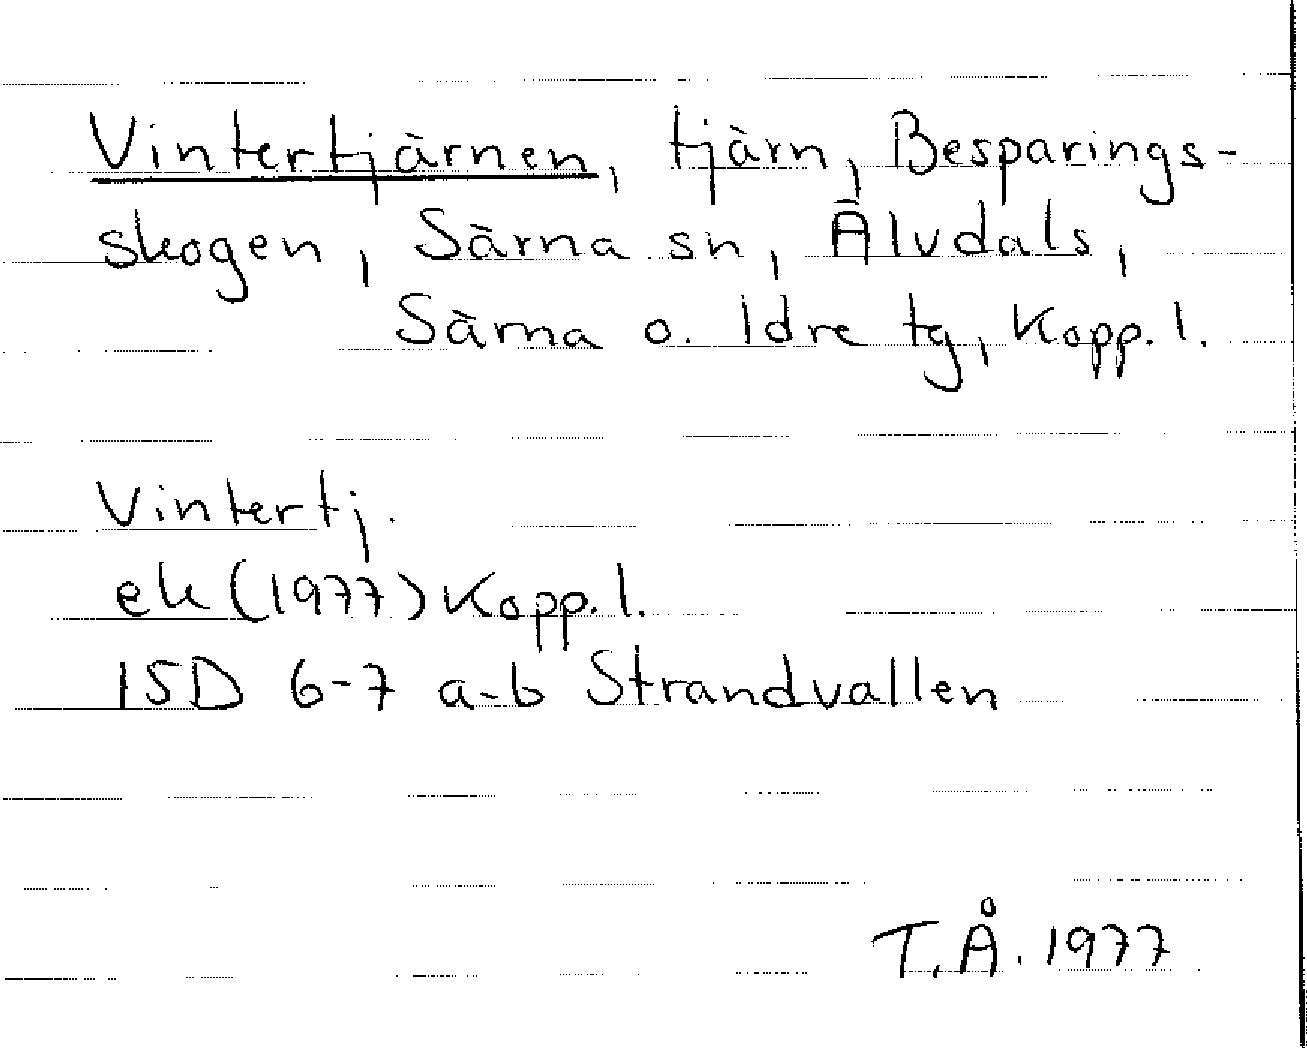 Vintertjärnen, tjärn, Besparings-
skogen, Särna sn, Älvdals,
Särna o. Idre tg, Kopp. l.
Vintertj.
ek (1977) Kopp. l.
15D 6-7 a-b Strandvallen
T.Å. 1977